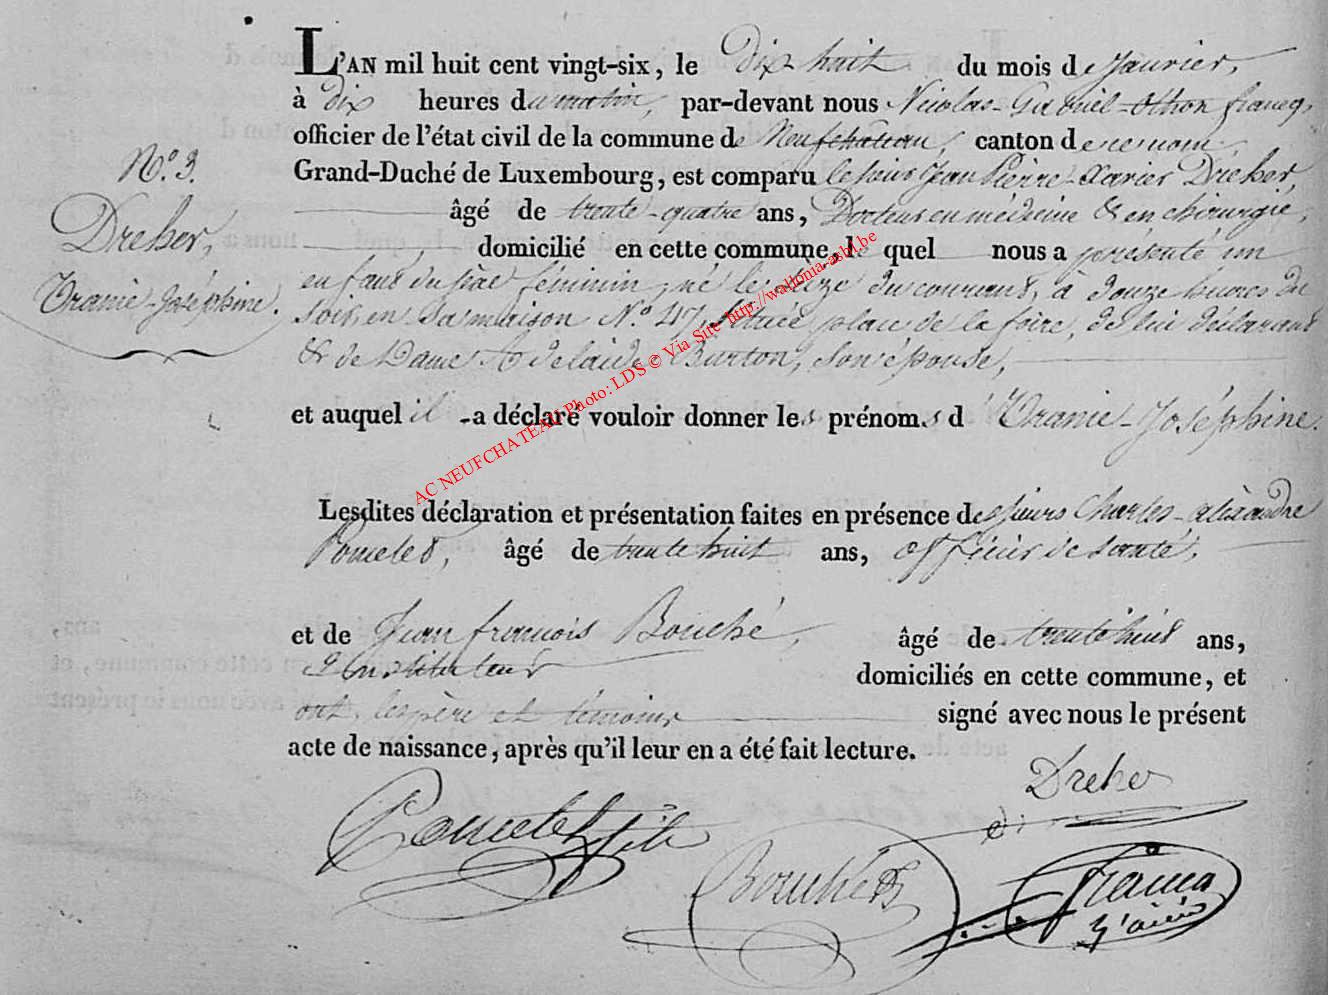 L'AN mil huit cent vingt-six, le dix huit du mois de Janvier,
à dix heures du matin, par-devant nous Nicolas-Gabriel-Othon francq,
officier de l'état civil de la commune de Neufchateau, canton de ce nom
N.o 3.
Grand-Duché de Luxembourg, est comparu le sieur Jean Pierre-Xavier Dreher,
âgé de trente-quatre ans, Docteur en médecine & en chirurgie,
Dreher,
domicilié en cette commune, le quel nous a présenté un
enfant du sexe féminin, né le du courant, à douze heures du
Oranie-Joséphine.
soir, en sa maison N.o 47, située place de la foire, de lui déclarant
& de Dame Adelaïde Burton, son épouse,
et auquel il a déclaré vouloir donner les prénoms d'Oranie-Joséphine.
Lesdites déclaration et présentation faites en présence des sieurs Charles-alexandre
Poncelet, âgé de trente huit ans, officier de santé,
et de Jean françois Bouché, âgé de trente huit ans,
Instituteur domiciliés en cette commune, et
ont, les père et témoins signé avec nous le présent
acte de naissance, après qu'il leur en a été fait lecture.
Dreher
Poncelet fils
Bouché
AC NEUFCHATEAU Photo: LDS © Via Site http://wallonia-asbl.be